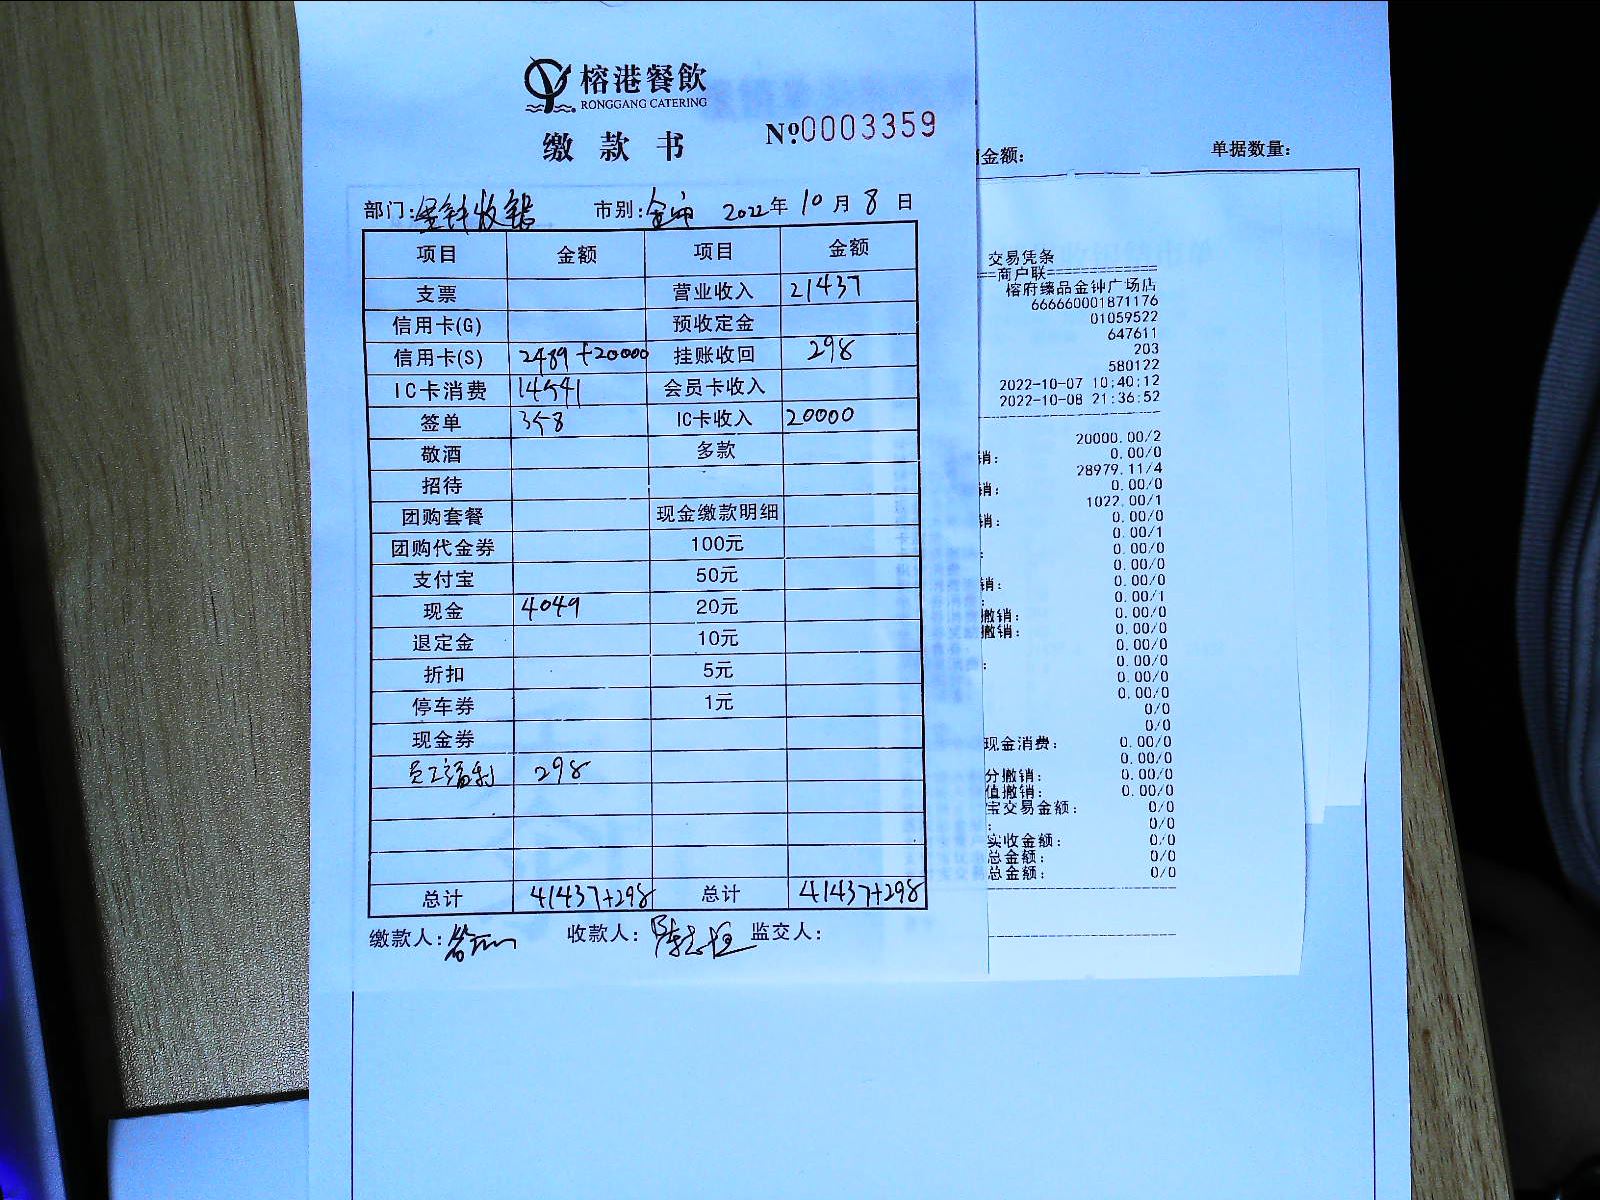 榕港餐飲
RONGGANG CATERING
缴款书
№0003359
部门:金钟收银 市别:全市 2022年10月8日
项目 金额 项目 金额
支票 营业收入 21437
信用卡(G) 预收定金
信用卡(S) 2489+20000 挂账收回 298
IC卡消费 14541 会员卡收入
签单 358 IC卡收入 20000
敬酒 多款
招待
团购套餐 现金缴款明细
团购代金券 100元
支付宝 50元
现金 4049 20元
退定金 10元
折扣 5元
停车券 1元
现金券
员工福利 298
总计 41437+298 总计 41437+298
缴款人: 收款人: 监交人:
金额: 单据数量:
交易凭条
商户联
榕府臻品金钟广场店
666660001871176
01059522
647611
203
580122
2022-10-07 10:40:12
2022-10-08 21:36:52
20000.00/2
销: 0.00/0
28979.11/4
销: 0.00/0
1022.00/1
销: 0.00/0
0.00/1
: 0.00/0
0.00/0
销: 0.00/0
: 0.00/1
撤销: 0.00/0
撤销: 0.00/0
0.00/0
: 0.00/0
0.00/0
0.00/0
0/0
0/0
现金消费: 0.00/0
0.00/0
分撤销: 0.00/0
值撤销: 0.00/0
宝交易金额: 0/0
: 0/0
实收金额: 0/0
总金额: 0/0
总金额: 0/0